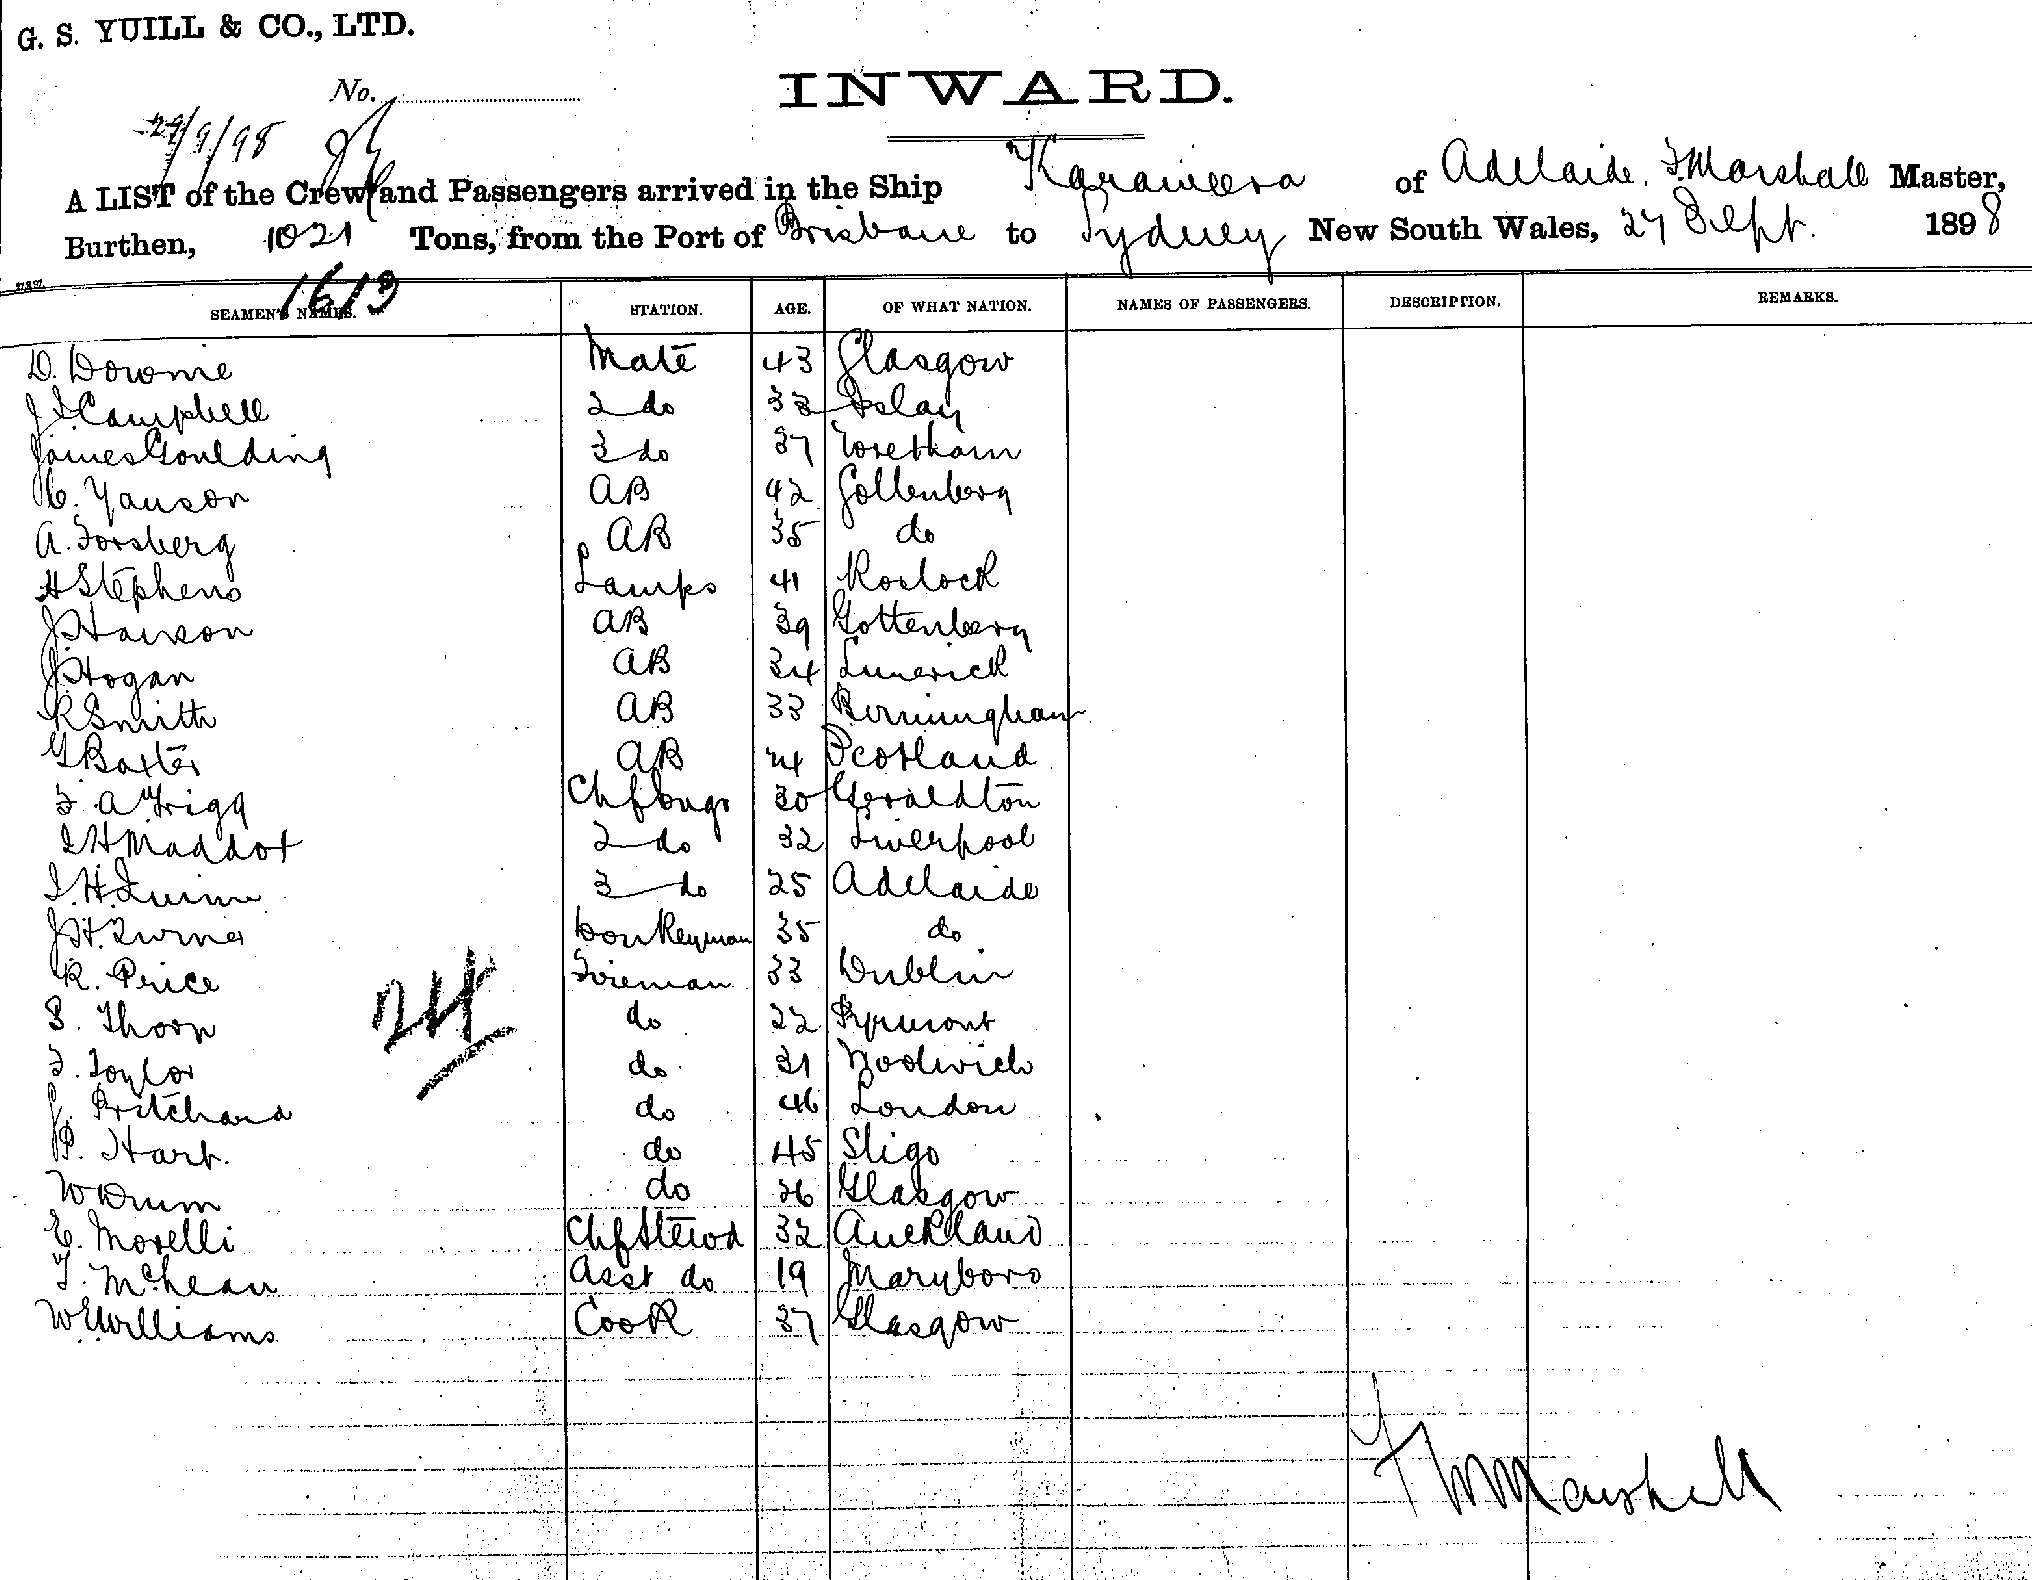 G. S. YUILL & CO., LTD.
No.
INWARD.
27/9/98
A LIST of the Crew and Passengers arrived in the Ship Karaweera of Adelaide. F. Marshall Master,
Burthen, 1021 Tons, from the Port of Brisbane to Sydney New South Wales, 27 Sept. 1898
1613
SEAMEN'S NAMES. STATION. AGE. OF WHAT NATION. NAMES OF PASSENGERS. DESCRIPTION. REMARKS.
D. Downie Mate 43 Glasgow
J Campbell 2 do 33 Islay
James Goulding 3 do 37
C. Yanson AB 42 Gottenberg
A. Forsberg AB 35 do
H Stephens Lamps 41 Rostock
J Hanson AB 39 Gottenberg
J Hogan AB 34 Limerick
R Smith AB 33 Birmingham
G Baxter AB 24 Scotland
F. A Trigg Chf Engr 30 Geraldton
J H Maddot 2 do 32 Liverpool
J. H. Quinn 3 do 25 Adelaide
J. H. Turner Donkeyman 35 do
R. Price Fireman 33 Dublin
S. Thorn do 22 Pyrmont
F. Taylor do 31 Woolwich
J. Pritchard do 46 London
P. Hart. do 45 Sligo
W Drum do 26 Glasgow
E. Morelli Chf Stewd 32 Auckland
T. McLean Asst do 19 Maryboro
W E Williams Cook 37 Glasgow
24
F W Marshall